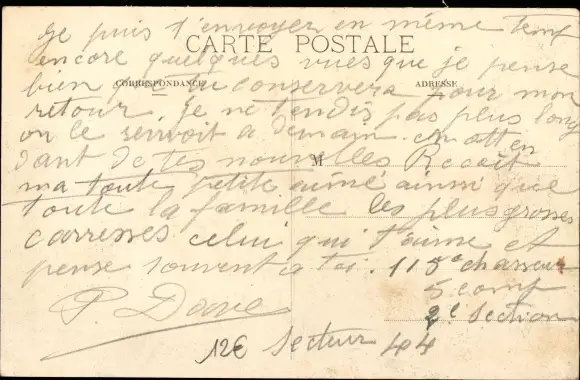 Je puis t'envoyer en même temp
CARTE POSTALE
encore quelques vues que je pense
bien tu conservera pour mon
CORRESPONDANCE
ADRESSE
retour. Je ne t'en dis pas plus long
on le renvoit a demain. en atten
dant de tes nouvelles Recoit
M
ma toute petite aimé ainsi que
toute la famille les plus grosses
carresses celui qui t'aime et
pense souvent a toi. 115e chasseur
5 comp
P. Dave
2e Section
12€ Secteur 44